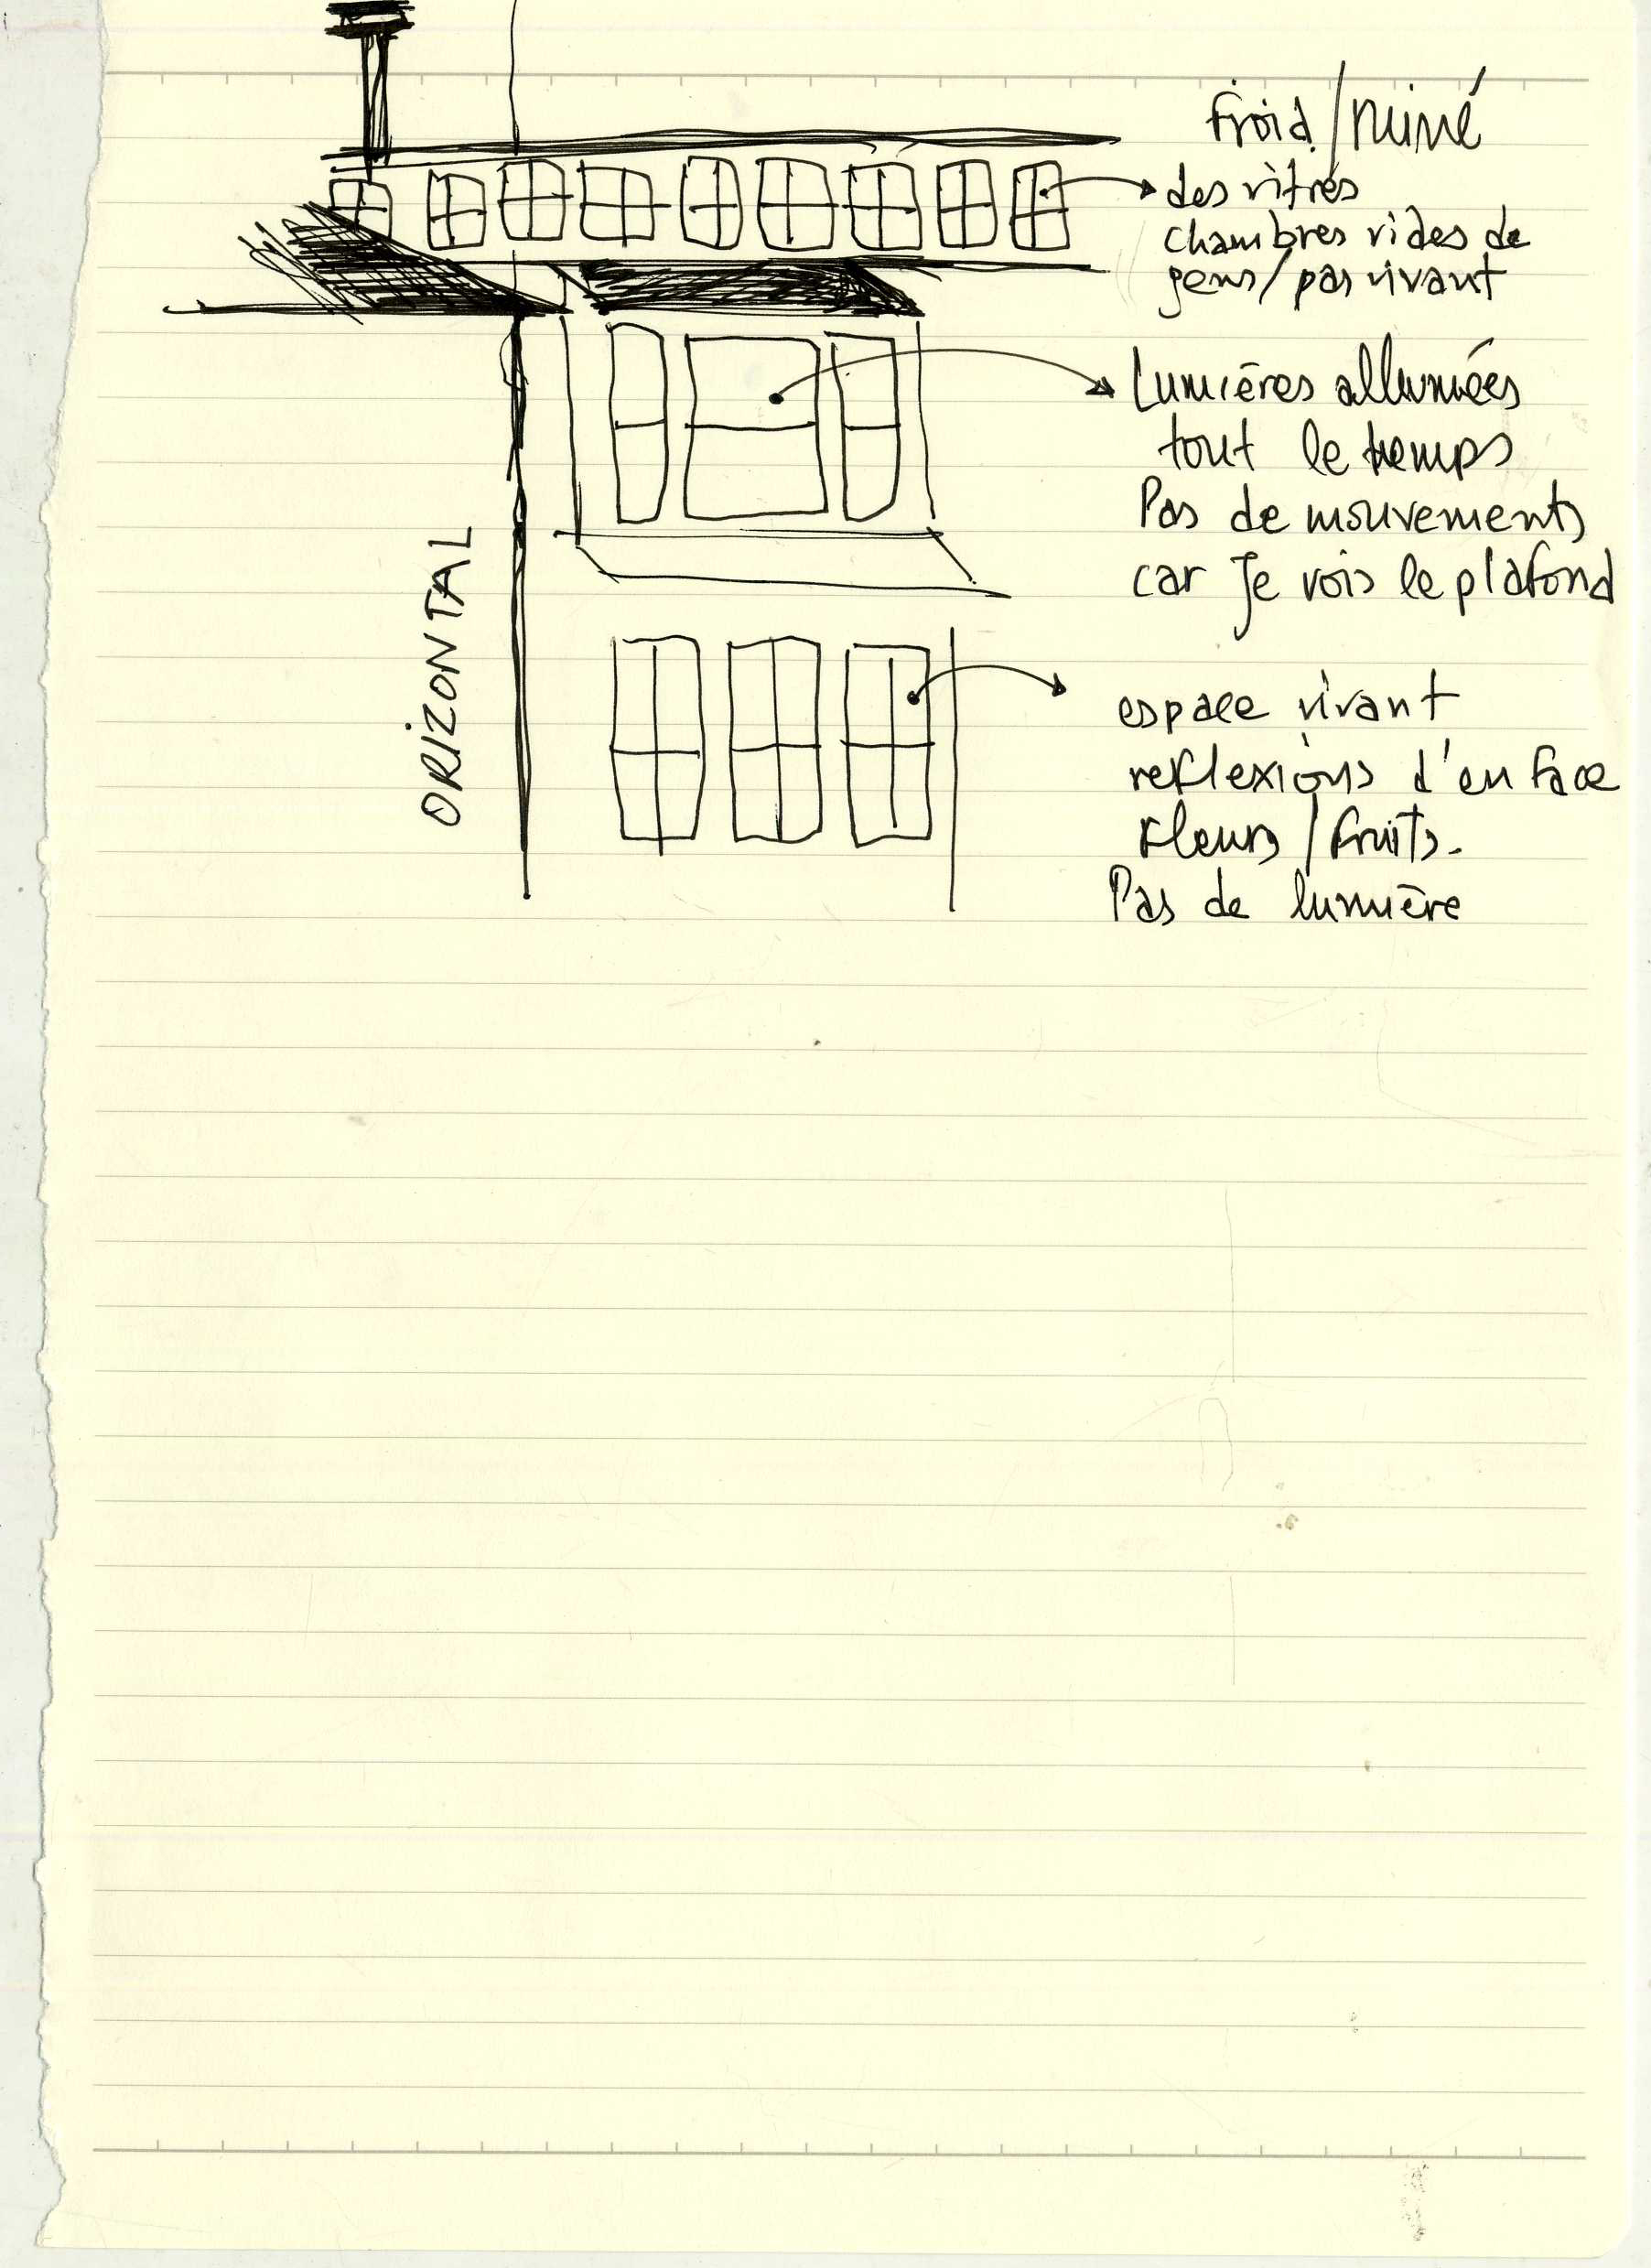 froid/ruiné
des vitres
chambres vides de
gens/pas vivant
Lumières allumées
tout le temps
Pas de mouvements
car Je vois le plafond
ORIZONTAL
espace vivant
reflexions d'en face
fleurs/fruits.
Pas de lumière